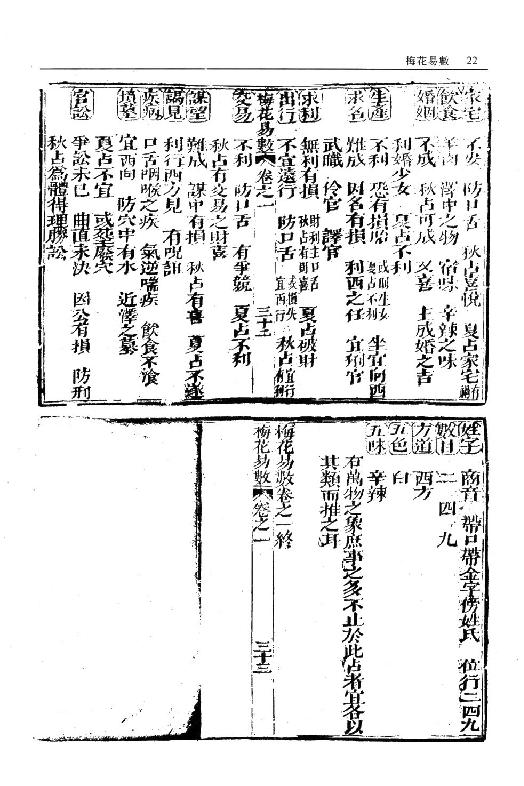 梅花易數 22
家宅 不安 防口舌 秋占喜悅 夏占家宅有禍
飲食 羊肉 澤中之物 宿味 辛辣之味
婚姻 不成 秋占可成 又喜 主成婚之吉
利婚少女 夏占不利
生產 不利 恐有損胎 或則生女 夏占不利 坐宜向西
求名 難成 因名有損 利西之任 宜刑官
武職 伶官 譯官
求利 無利有損 財利主口舌 秋占有財喜 夏占破財
出行 不宜遠行 防口舌 宜西行 秋占宜行
梅花易數 卷之一 三十二
交易 不利 防口舌 有爭競 夏占不利
秋占有交易之財喜
謀望 難成 謀中有損 秋占有喜 夏占不遂
謁見 利行西方見 有咒詛
疾病 口舌咽喉之疾 氣逆喘疾 飲食不飧
墳墓 宜西向 防穴中有水 近澤之墓
夏占不宜 或葬廢穴
官訟 爭訟未已 曲直未決 因公有損 防刑
秋占為體得理勝訟
姓字 商音 帶口帶金字傍姓氏 位行二四九
數目 二 四 九
方道 西方
五色 白
五味 辛辣
右萬物之象庶事之多不止於此占者宜各以
其類而推之耳
梅花易數卷之一終
梅花易數 卷之一 三十三